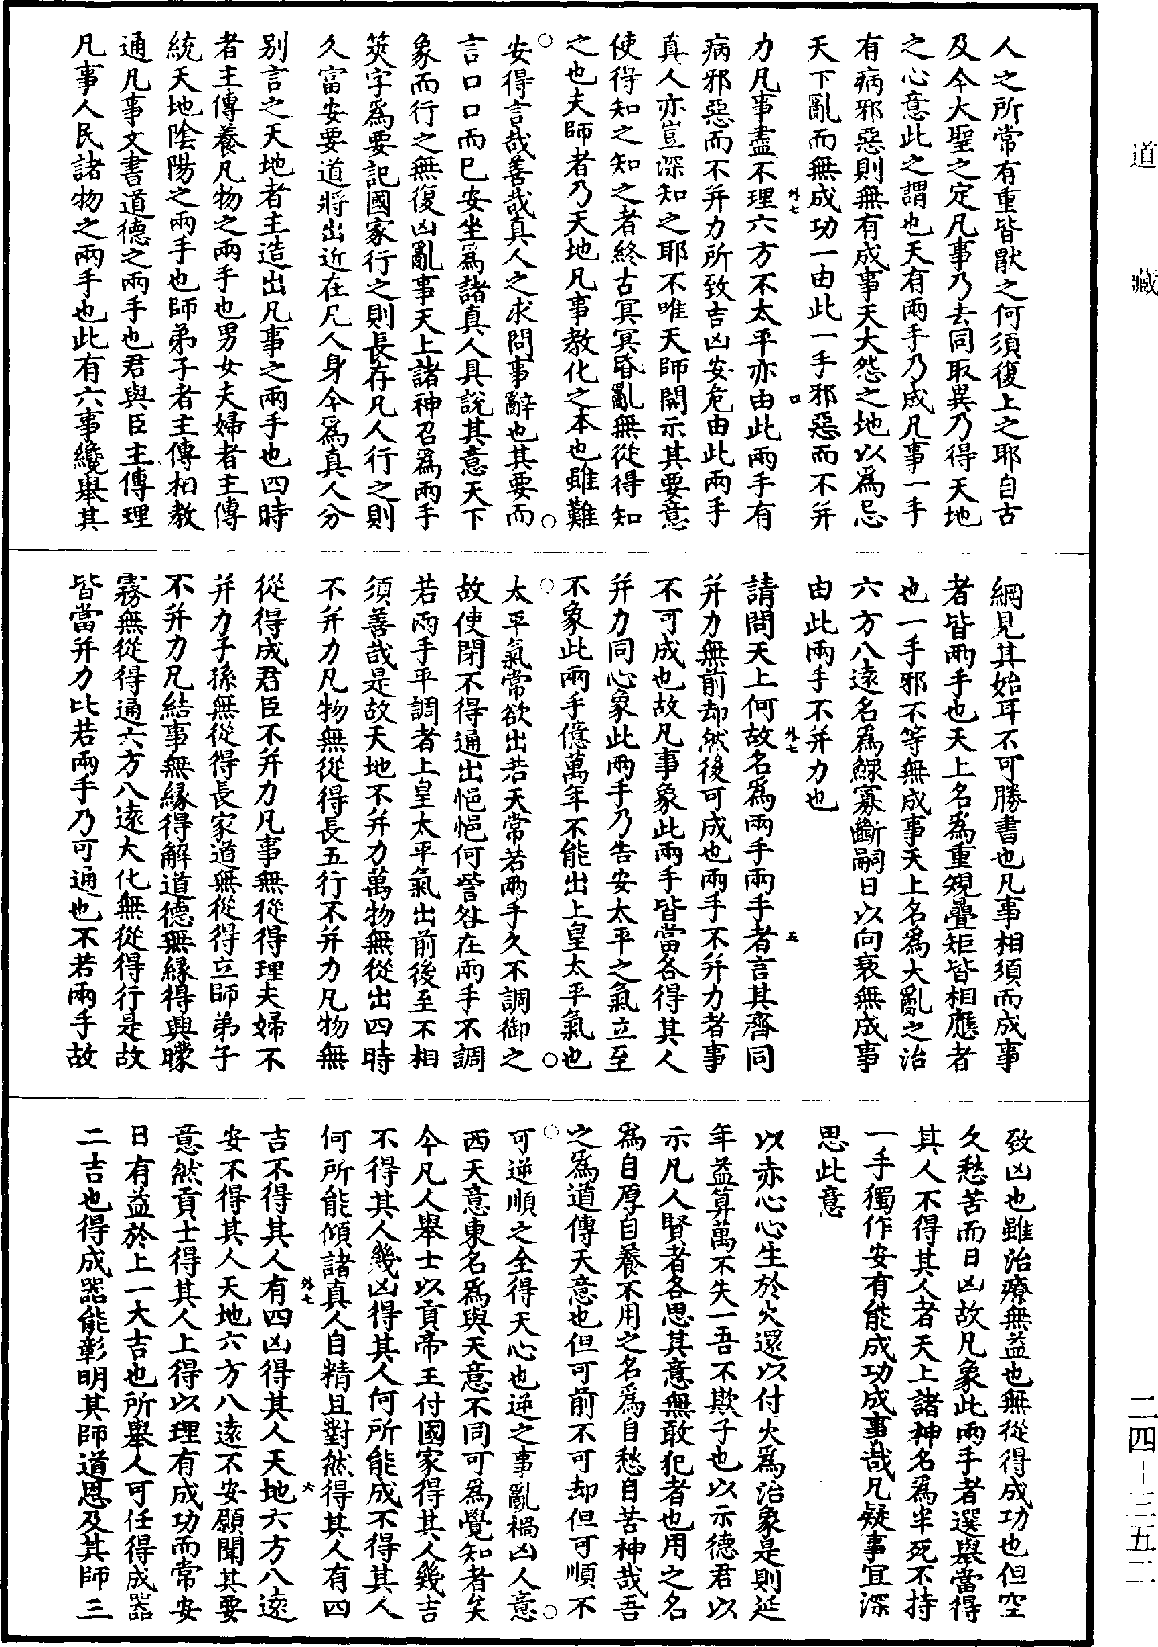 道藏
人之所常有重皆猒之何須復上之耶自古
及今大聖之定凡事乃去同取異乃得天地
之心意此之謂也天有兩手乃成凡事一手
有病邪惡則無有成事天大怨之地以爲忌
天下亂而無成功一由此一手邪惡而不并
外七 口
力凡事盡不理六方不太平亦由此兩手有
病邪惡而不并力所致吉凶安危由此兩手
真人亦豈深知之耶不唯天師開示其要意
使得知之知之者終古冥冥昏亂無從得知
之也夫師者乃天地凡事教化之本也雖難
安得言哉善哉真人之求問事辭也其要而
言口口而已安坐爲諸真人具說其意天下
象而行之無復凶亂事天上諸神召爲兩手
筴字爲要記國家行之則長存凡人行之則
久富安要道將出近在凡人身今爲真人分
別言之天地者主造出凡事之兩手也四時
者主傳養凡物之兩手也男女夫婦者主傳
統天地陰陽之兩手也師弟子者主傳相教
通凡事文書道德之兩手也君與臣主傳理
凡事人民諸物之兩手也此有六事纔舉其
綱見其始耳不可勝書也凡事相須而成事
者皆兩手也天上名爲重規疊矩皆相應者
也一手邪不等無成事天上名爲大亂之治
六方八遠名爲鰥寡斷嗣日以向衰無成事
由此兩手不并力也
外七 五
請問天上何故名爲兩手兩手者言其齊同
并力無前却然後可成也兩手不并力者事
不可成也故凡事象此兩手皆當各得其人
并力同心象此兩手乃吉安太平之氣立至
不象此兩手億萬年不能出上皇太平氣也
太平氣常欲出若天常若兩手久不調御之
故使閉不得通出悒悒何訾咎在兩手不調
若兩手平調者上皇太平氣出前後至不相
須善哉是故天地不并力萬物無從出四時
不并力凡物無從得長五行不并力凡物無
從得成君臣不并力凡事無從得理夫婦不
并力子孫無從得長家道無從得立師弟子
不并力凡結事無緣得解道德無緣得興矇
霧無從得通六方八遠大化無從得行是故
皆當并力比若兩手乃可通也不若兩手故
致凶也雖治療無益也無從得成功也但空
久愁苦而日凶故凡象此兩手者選舉當得
其人不得其人者天上諸神名爲半死不持
一手獨作安有能成功成事哉凡疑事宜深
思此意
以赤心心生於火還以付火爲治象是則延
年益算萬不失一吾不欺子也以示德君以
示凡人賢者各思其意無敢犯者也用之名
爲自厚自養不用之名爲自愁自苦神哉吾
之爲道傳天意也但可前不可却但可順不
可逆順之全得天心也逆之事亂禍凶人意
西天意東名爲與天意不同可爲覺知者矣
今凡人舉士以貢帝王付國家得其人幾吉
不得其人幾凶得其人何所能成不得其人
何所能傾諸真人自精且對然得其人有四
外七 六
吉不得其人有四凶得其人天地六方八遠
安不得其人天地六方八遠不安願聞其要
意然貢士得其人上得以理有成功而常安
日有益於上一大吉也所舉人可任得成器
二吉也得成器能彰明其師道恩及其師三
二四-三五二